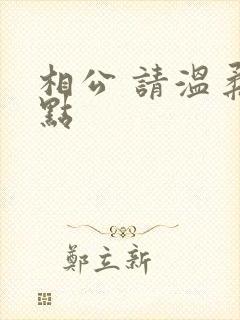 相公 請溫柔
點
鄭立新